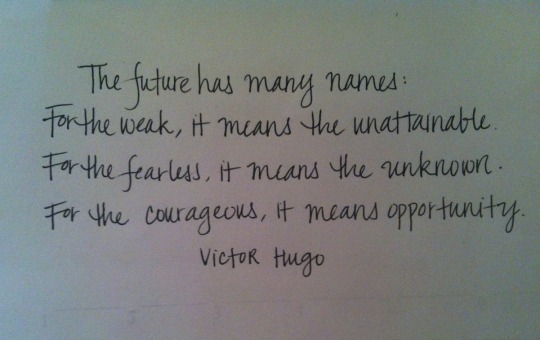 The future has many names:
For the weak, it means the unattainable.
For the fearless, it means the unknown.
For the courageous, it means opportunity.
Victor Hugo